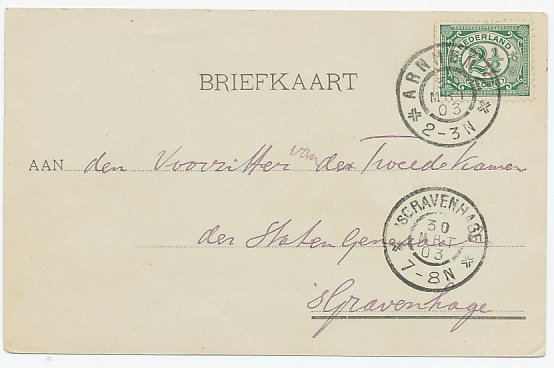 NEDERLAND
2½
CENT
ARNHEM
MRT
03
2-3N
BRIEFKAART
AAN den Voorzitter van der Tweede Kamer
'SGRAVENHAGE
30
MRT
03
7-8N
der Staten Generaal
'sGravenhage